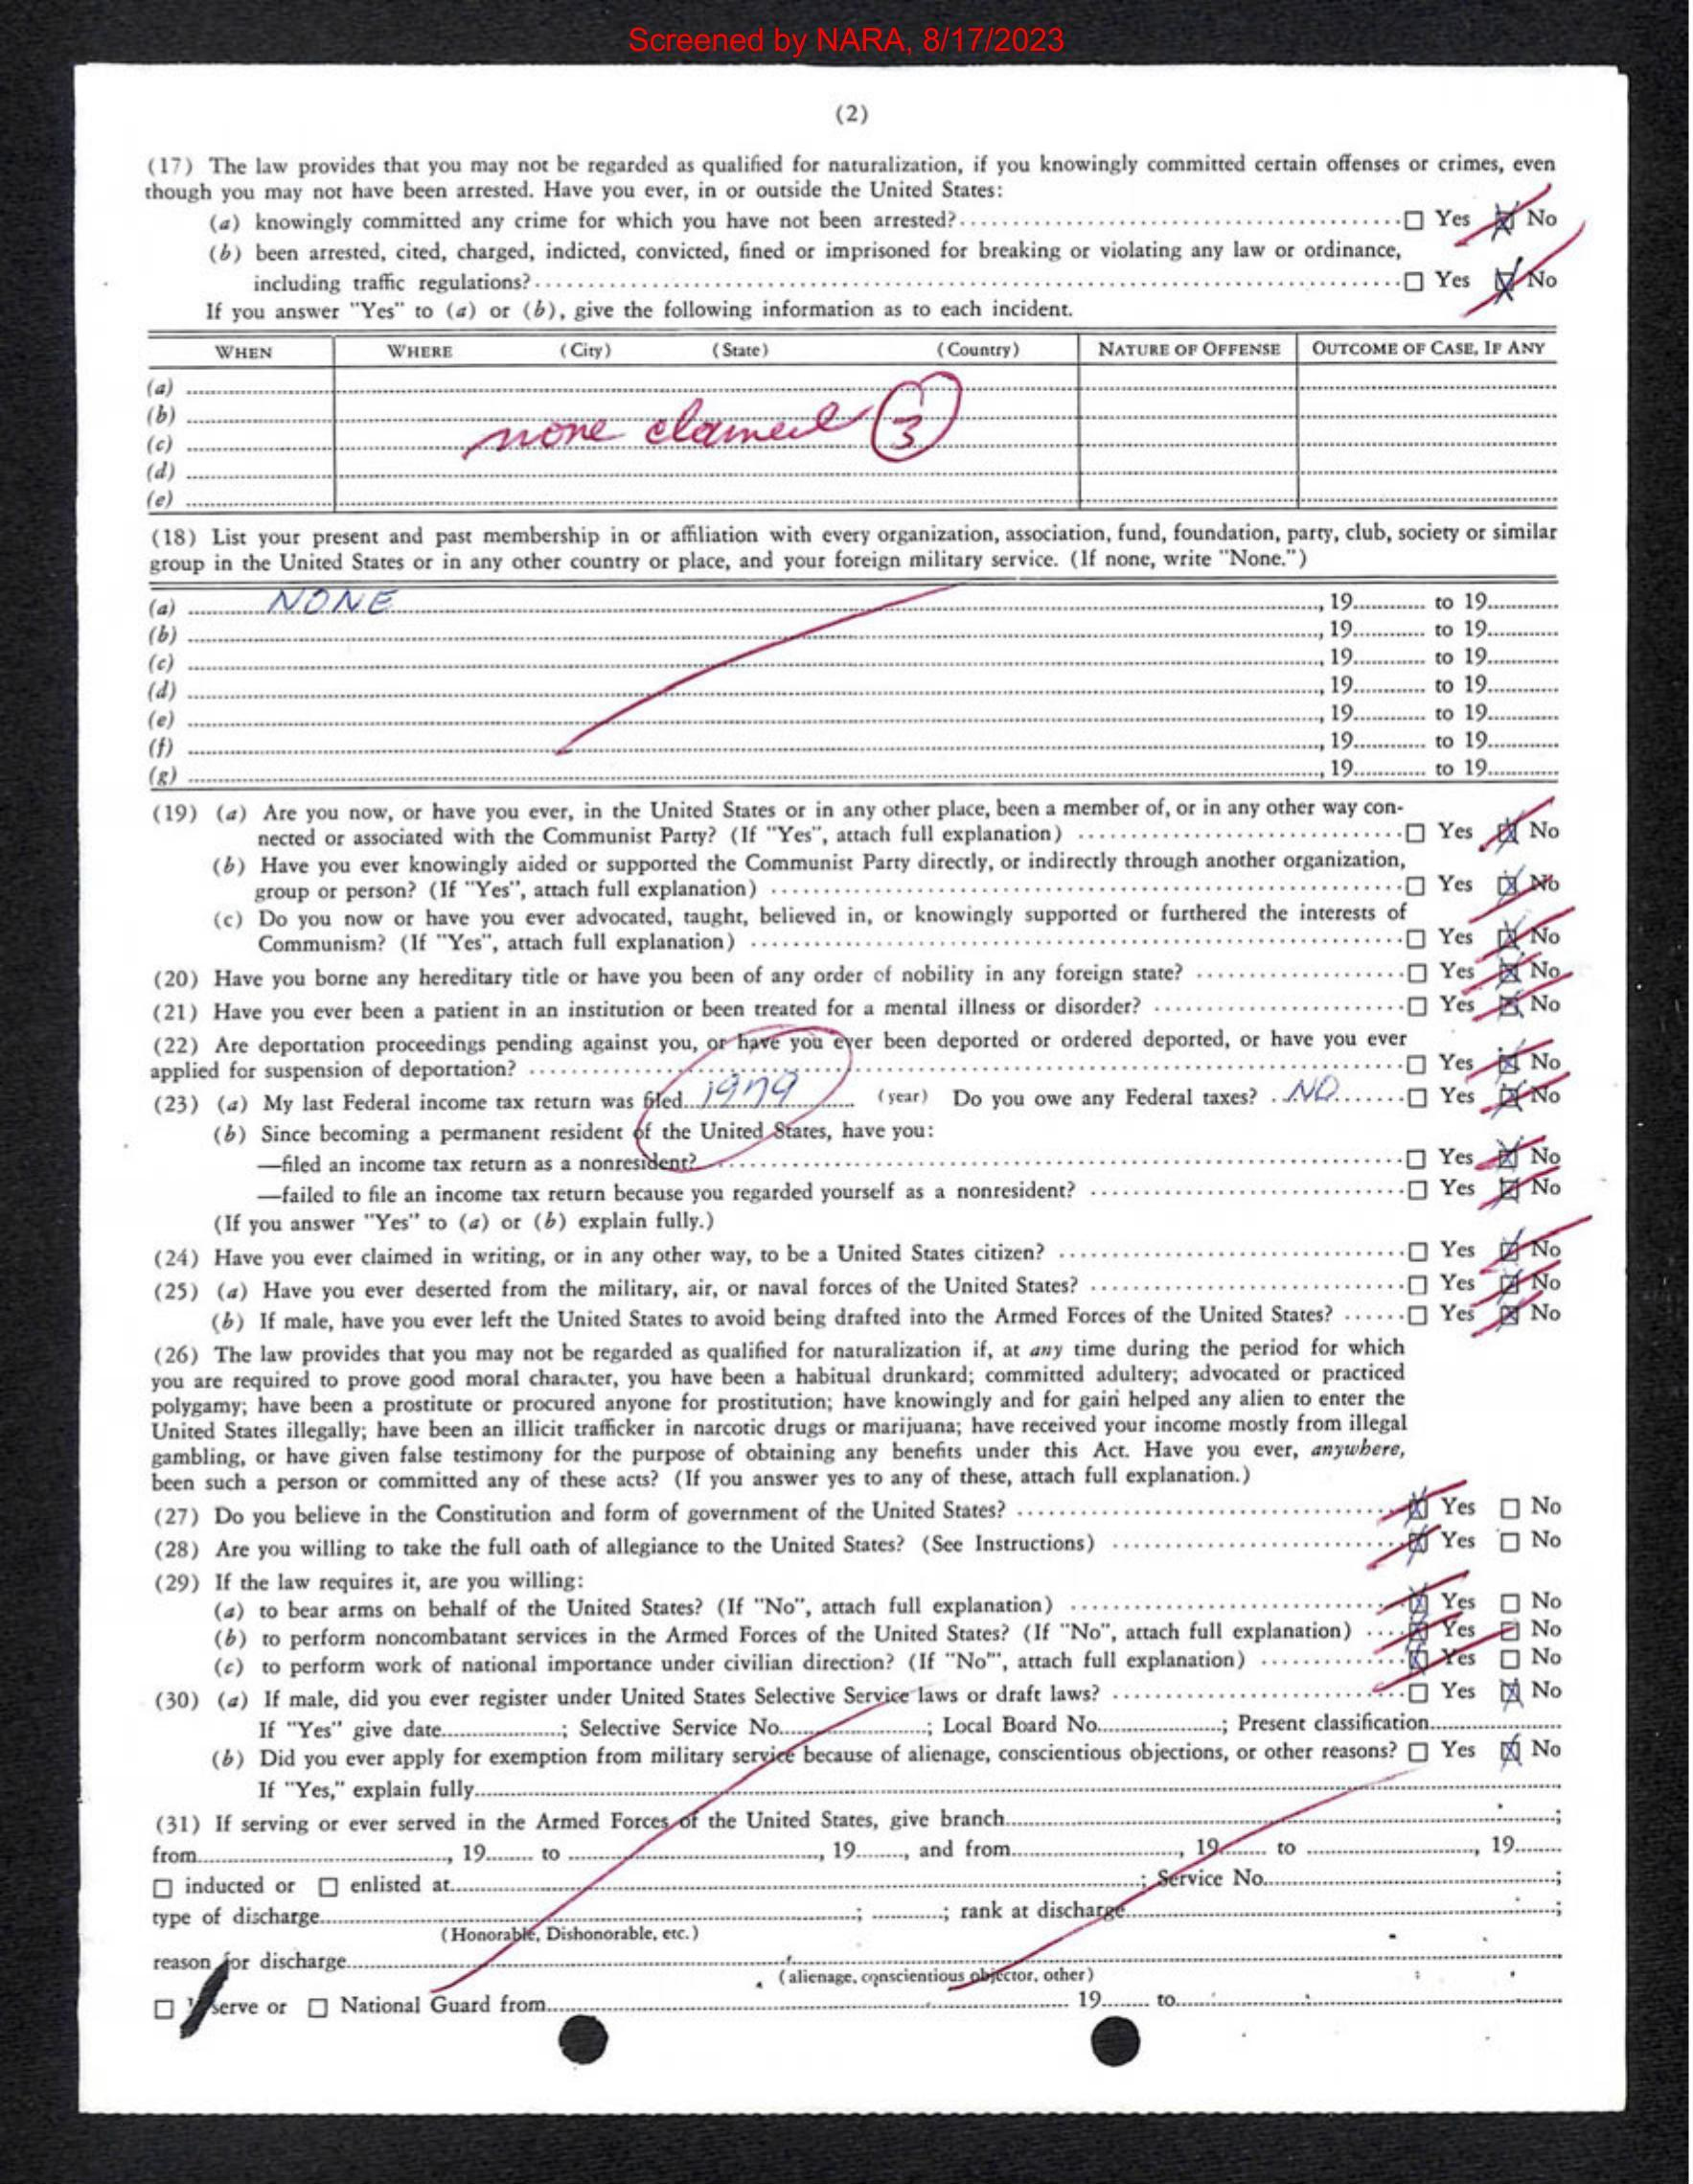 Screened by NARA, 8/17/2023
(2)
(17) The law provides that you may not be regarded as qualified for naturalization, if you knowingly committed certain offenses or crimes, even
though you may not have been arrested. Have you ever, in or outside the United States:
(a) knowingly committed any crime for which you have not been arrested? ☐ Yes ☒ No
(b) been arrested, cited, charged, indicted, convicted, fined or imprisoned for breaking or violating any law or ordinance,
including traffic regulations? ☐ Yes ☒ No
If you answer "Yes" to (a) or (b), give the following information as to each incident.
WHEN WHERE (City) (State) (Country) NATURE OF OFFENSE OUTCOME OF CASE, IF ANY
(a)
(b)
(c) none claimed 3
(d)
(e)
(18) List your present and past membership in or affiliation with every organization, association, fund, foundation, party, club, society or similar
group in the United States or in any other country or place, and your foreign military service. (If none, write "None.")
(a) NONE , 19 to 19
(b) , 19 to 19
(c) , 19 to 19
(d) , 19 to 19
(e) , 19 to 19
(f) , 19 to 19
(g) , 19 to 19
(19) (a) Are you now, or have you ever, in the United States or in any other place, been a member of, or in any other way con-
nected or associated with the Communist Party? (If "Yes", attach full explanation) ☐ Yes ☒ No
(b) Have you ever knowingly aided or supported the Communist Party directly, or indirectly through another organization,
group or person? (If "Yes", attach full explanation) ☐ Yes ☒ No
(c) Do you now or have you ever advocated, taught, believed in, or knowingly supported or furthered the interests of
Communism? (If "Yes", attach full explanation) ☐ Yes ☒ No
(20) Have you borne any hereditary title or have you been of any order of nobility in any foreign state? ☐ Yes ☒ No
(21) Have you ever been a patient in an institution or been treated for a mental illness or disorder? ☐ Yes ☒ No
(22) Are deportation proceedings pending against you, or have you ever been deported or ordered deported, or have you ever
applied for suspension of deportation? ☐ Yes ☒ No
(23) (a) My last Federal income tax return was filed 1979 (year) Do you owe any Federal taxes? NO ☐ Yes ☒ No
(b) Since becoming a permanent resident of the United States, have you:
—filed an income tax return as a nonresident? ☐ Yes ☒ No
—failed to file an income tax return because you regarded yourself as a nonresident? ☐ Yes ☒ No
(If you answer "Yes" to (a) or (b) explain fully.)
(24) Have you ever claimed in writing, or in any other way, to be a United States citizen? ☐ Yes ☒ No
(25) (a) Have you ever deserted from the military, air, or naval forces of the United States? ☐ Yes ☒ No
(b) If male, have you ever left the United States to avoid being drafted into the Armed Forces of the United States? ☐ Yes ☒ No
(26) The law provides that you may not be regarded as qualified for naturalization if, at any time during the period for which
you are required to prove good moral character, you have been a habitual drunkard; committed adultery; advocated or practiced
polygamy; have been a prostitute or procured anyone for prostitution; have knowingly and for gain helped any alien to enter the
United States illegally; have been an illicit trafficker in narcotic drugs or marijuana; have received your income mostly from illegal
gambling, or have given false testimony for the purpose of obtaining any benefits under this Act. Have you ever, anywhere,
been such a person or committed any of these acts? (If you answer yes to any of these, attach full explanation.)
(27) Do you believe in the Constitution and form of government of the United States? ☒ Yes ☐ No
(28) Are you willing to take the full oath of allegiance to the United States? (See Instructions) ☒ Yes ☐ No
(29) If the law requires it, are you willing:
(a) to bear arms on behalf of the United States? (If "No", attach full explanation) ☒ Yes ☐ No
(b) to perform noncombatant services in the Armed Forces of the United States? (If "No", attach full explanation) ☒ Yes ☐ No
(c) to perform work of national importance under civilian direction? (If "No"', attach full explanation) ☒ Yes ☐ No
(30) (a) If male, did you ever register under United States Selective Service laws or draft laws? ☐ Yes ☒ No
If "Yes" give date ; Selective Service No. ; Local Board No. ; Present classification
(b) Did you ever apply for exemption from military service because of alienage, conscientious objections, or other reasons? ☐ Yes ☒ No
If "Yes," explain fully
(31) If serving or ever served in the Armed Forces of the United States, give branch ;
from , 19 to , 19 , and from , 19 to , 19
☐ inducted or ☐ enlisted at ; Service No. ;
type of discharge ; ; rank at discharge ;
(Honorable, Dishonorable, etc.)
reason for discharge
(alienage, conscientious objector, other)
☐ serve or ☐ National Guard from 19 to